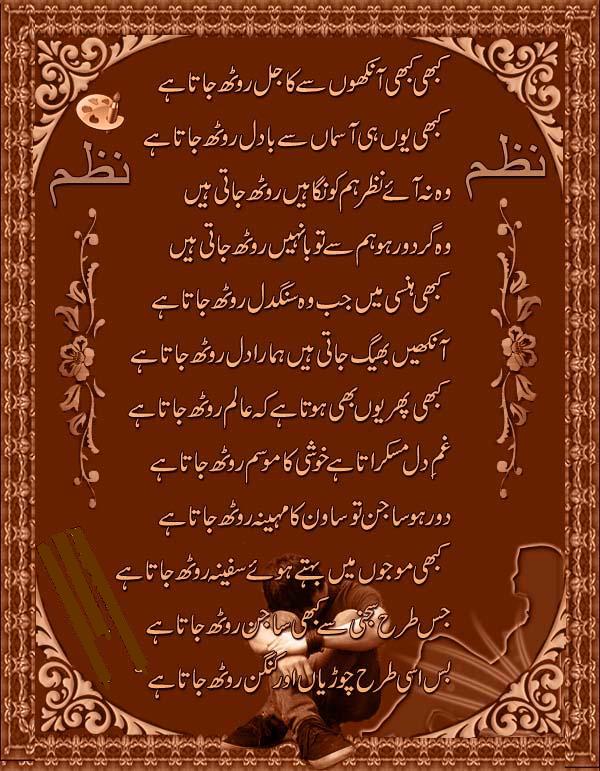 کبھی کبھی آنکھوں سے کاجل روٹھ جاتا ہے
کبھی یوں ہی آسماں سے بادل روٹھ جاتا ہے
نظم
نظم
وہ نہ آئے نظر ہم کو نگاہیں روٹھ جاتی ہیں
وہ گر دور ہو ہم سے تو بانہیں روٹھ جاتی ہیں
کبھی ہنسی میں جب وہ سنگدل روٹھ جاتا ہے
آنکھیں بھیگ جاتی ہیں ہمارا دل روٹھ جاتا ہے
کبھی پھر یوں بھی ہوتا ہے کہ عالم روٹھ جاتا ہے
غمِ دل مسکراتا ہے خوشی کا موسم روٹھ جاتا ہے
دور ہو ساجن تو ساون کا مہینہ روٹھ جاتا ہے
کبھی موجوں میں بہتے ہوئے سفینہ روٹھ جاتا ہے
جس طرح سجنی سے کبھی ساجن روٹھ جاتا ہے
بس اسی طرح چوڑیاں اور کنگن روٹھ جاتا ہے